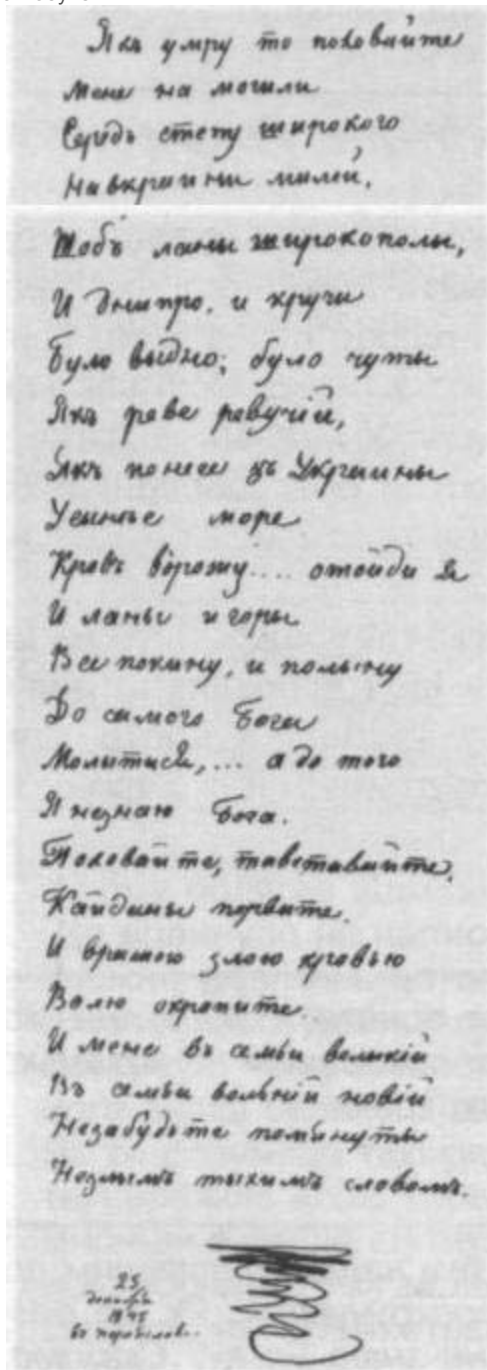 Якъ умру то поховайте
Мене на могили
Середъ степу широкого
На вкраини милій,
Щобъ ланы широкополы,
И Днипро, и кручи
Було выдно; було чуты
Якъ реве ревучій,
Якъ понесе зъ Украины
У сынье море
Кровъ ворожу.... отойди я
И ланы и горы
Все покину, и полыну
До самого Бога
Молитися,... а до того
Я незнаю Бога.
Поховайте, тавставайте.
Кайданы порвите.
И вражою злою кровью
Волю окропите.
И мене въ семьи великій
Въ семьи вольній новій
Незабудьте помянуты
Незлымъ тыхимъ словомъ.
25
декабря
1845
въ Переяслови.